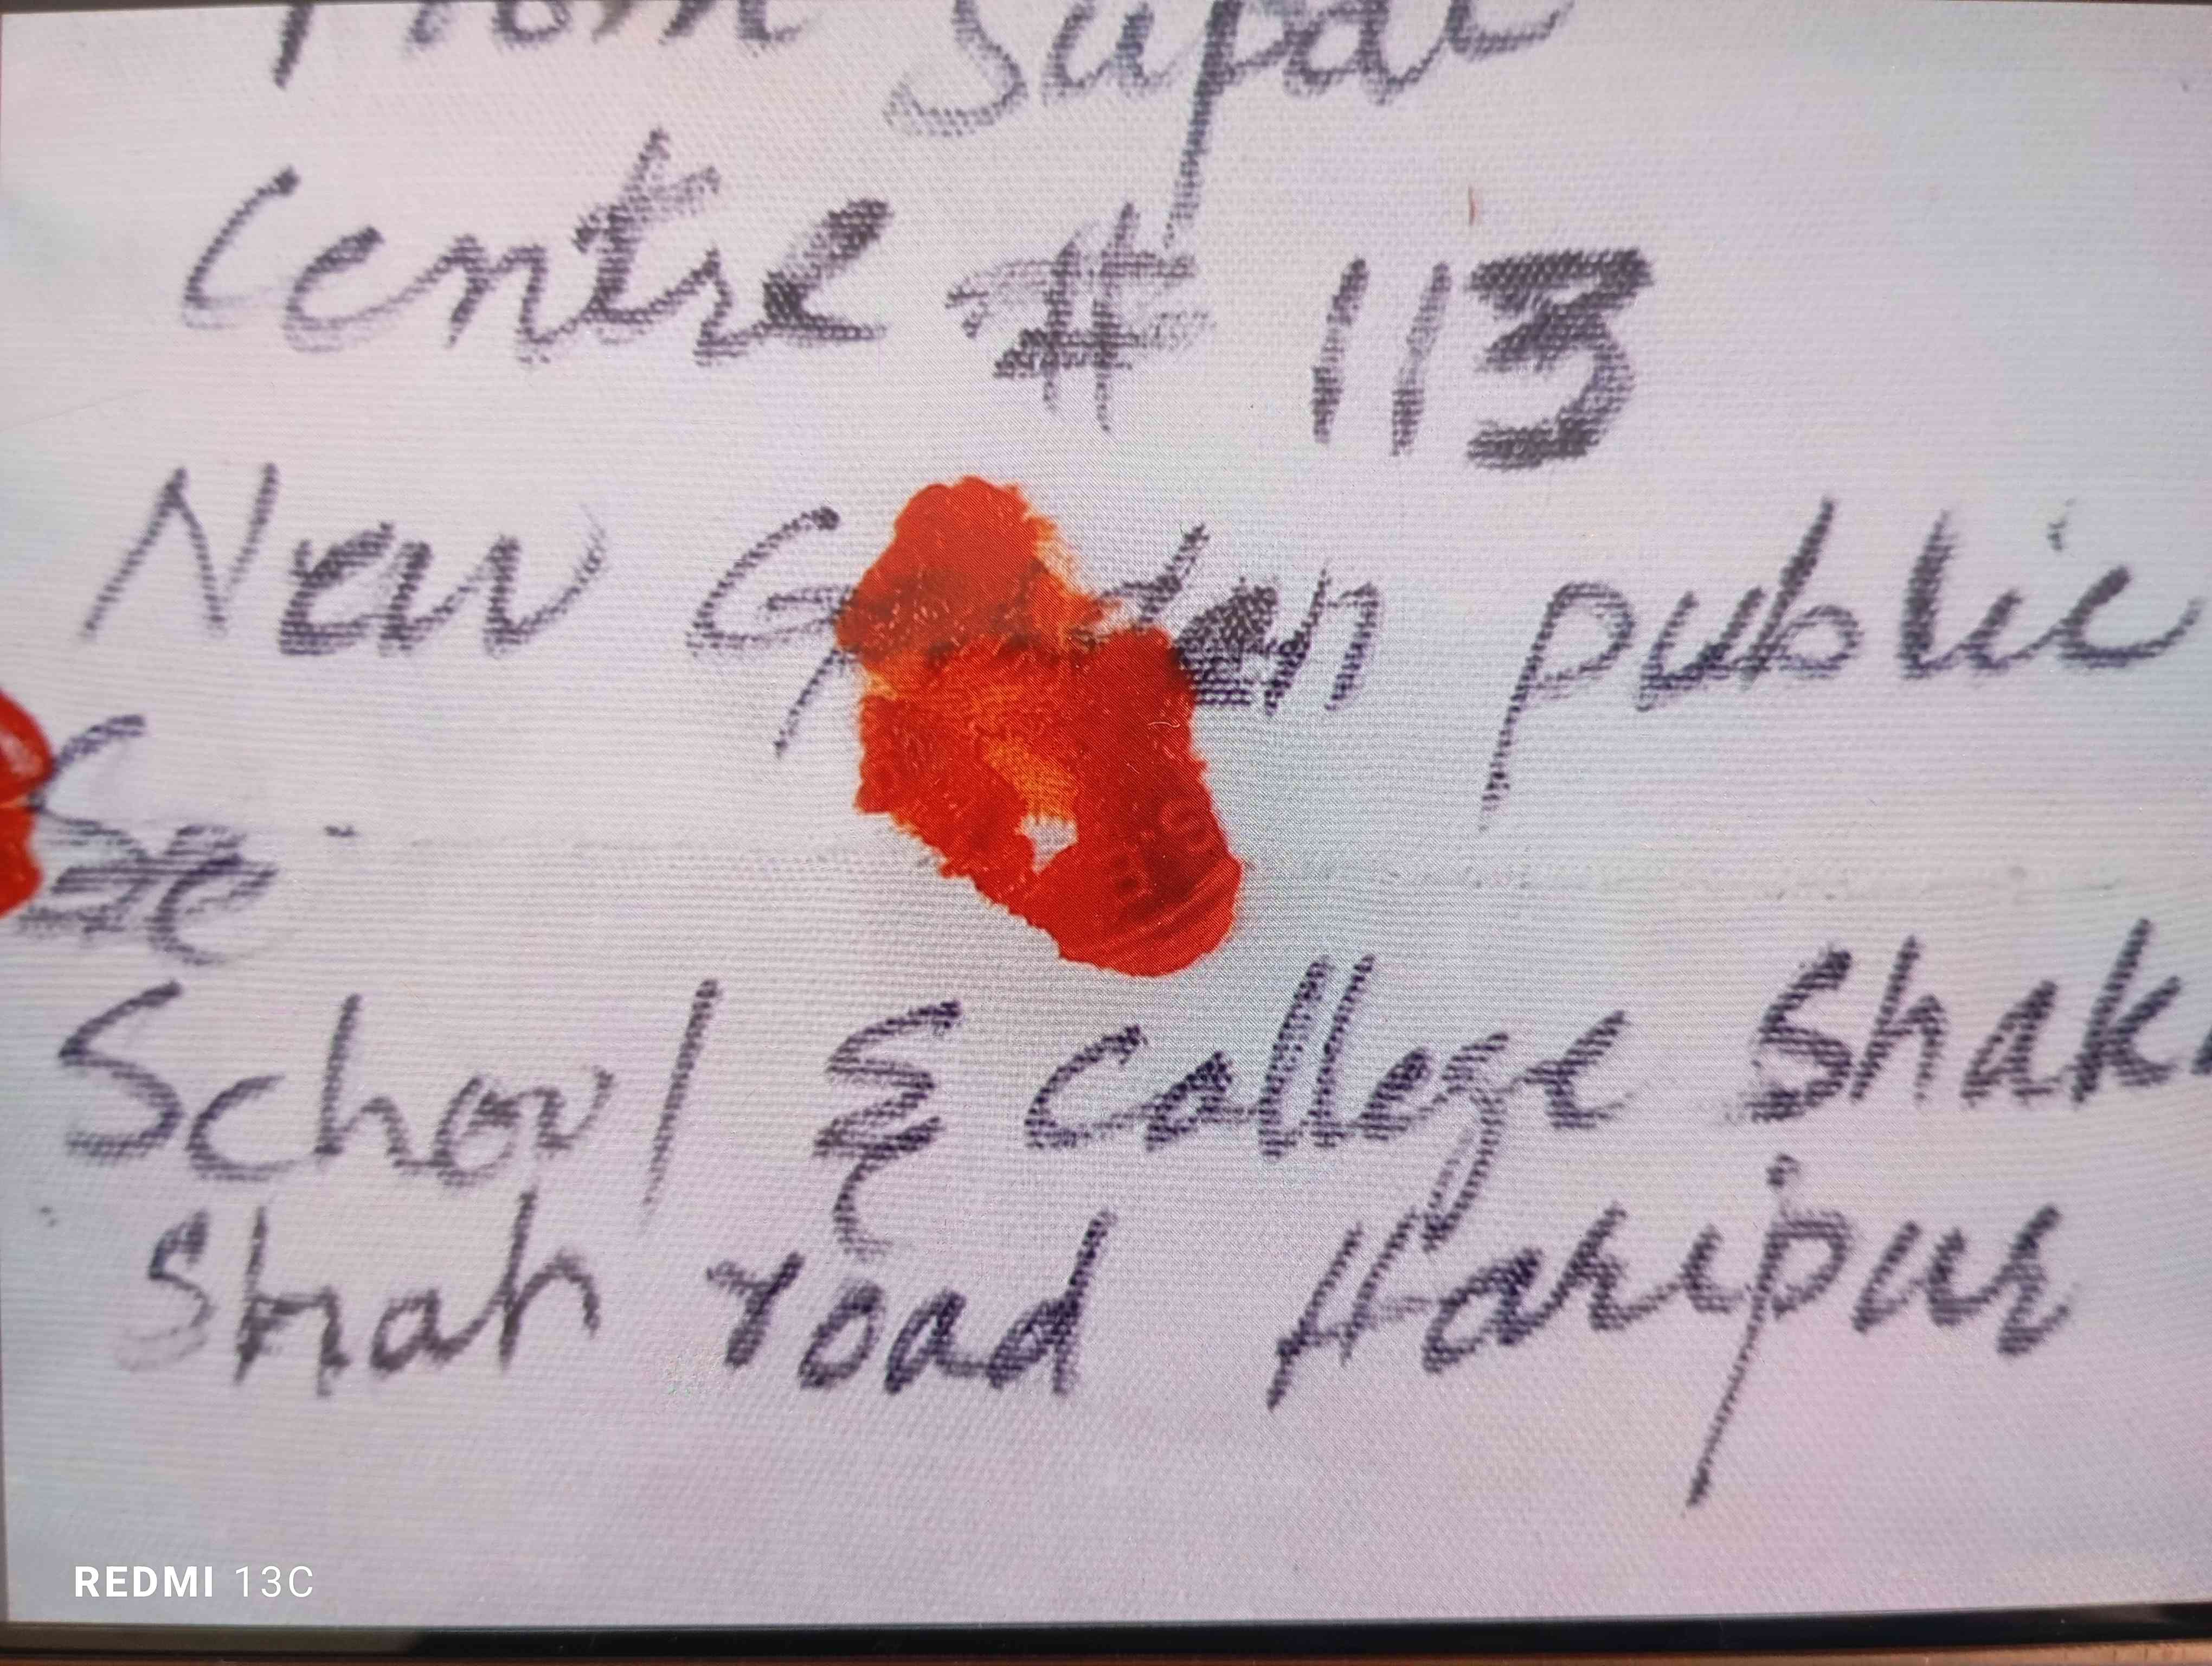 From Supdt
Centre # 113
New Garden public
School & College Shak
Shah road Haripur
REDMI 13C